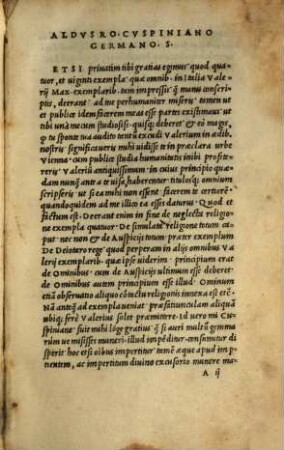 ALDVS RO. CVSPINIANO
GERMANO. S.
ETSI priuatim tibi gratias egimus quod quat
tuor, et uiginti exempla quæ omnib. in Italia Vale
rij Max. exemplarib. tam impressis quàm manu conscri
ptis, deerant ad me perhumaniter miseris tamen ut
et publice idem facerem meas esse partes existimaui ut
tibi una mecum studiosis quisque deberet & eò magis,
q̃ tu sponte tua audito tantũ excudi Valerium in ædib.
nostris significaueris mihi uidisse te in præclara urbe
Vienna cum publice studia humanitatis inibi profite
reris Valeriũ antiquissimum in cuius principio quæ
dam nunquã antè a te uisa, haberentur titulosq; omneis
scripseris ut si ea mihi non essent facerem te certiorẽ
quandoquidem ad me illico ea esses daturus. Quod et
factum est. Deerant enim in fine de neglecta religio
ne exempla quatuor. De simulata religione totum ca
put nec non & de Auspicijs totum præter exemplum
De Deiotaro rege quod perperam in alijs omnibus Va
lerij exemplarib. quæ ipse uiderim. principium erat
de Ominibus cum de Auspicijs ultimum esse deberet
de Ominibus autem principium esse illud. Ominum
etiã obseruatio aliquo cõtactu religionis innexa est etc̃.
Nã antẽq̃ ad exempla ueniat præfatiunculam aliquã
ubiq; ferè Valerius solet præmittere. Id uero mi Cu-
spiniane fuit mihi lõge gratius q̃ si auri multũ gemma
rum ue misisses muneri. illud impẽditur cõsumitur di
sperit hoc etsi eibus impertitur tamẽ æque apud im p
tientem, ac impertitum diuino excusorio munere ma-
A ij